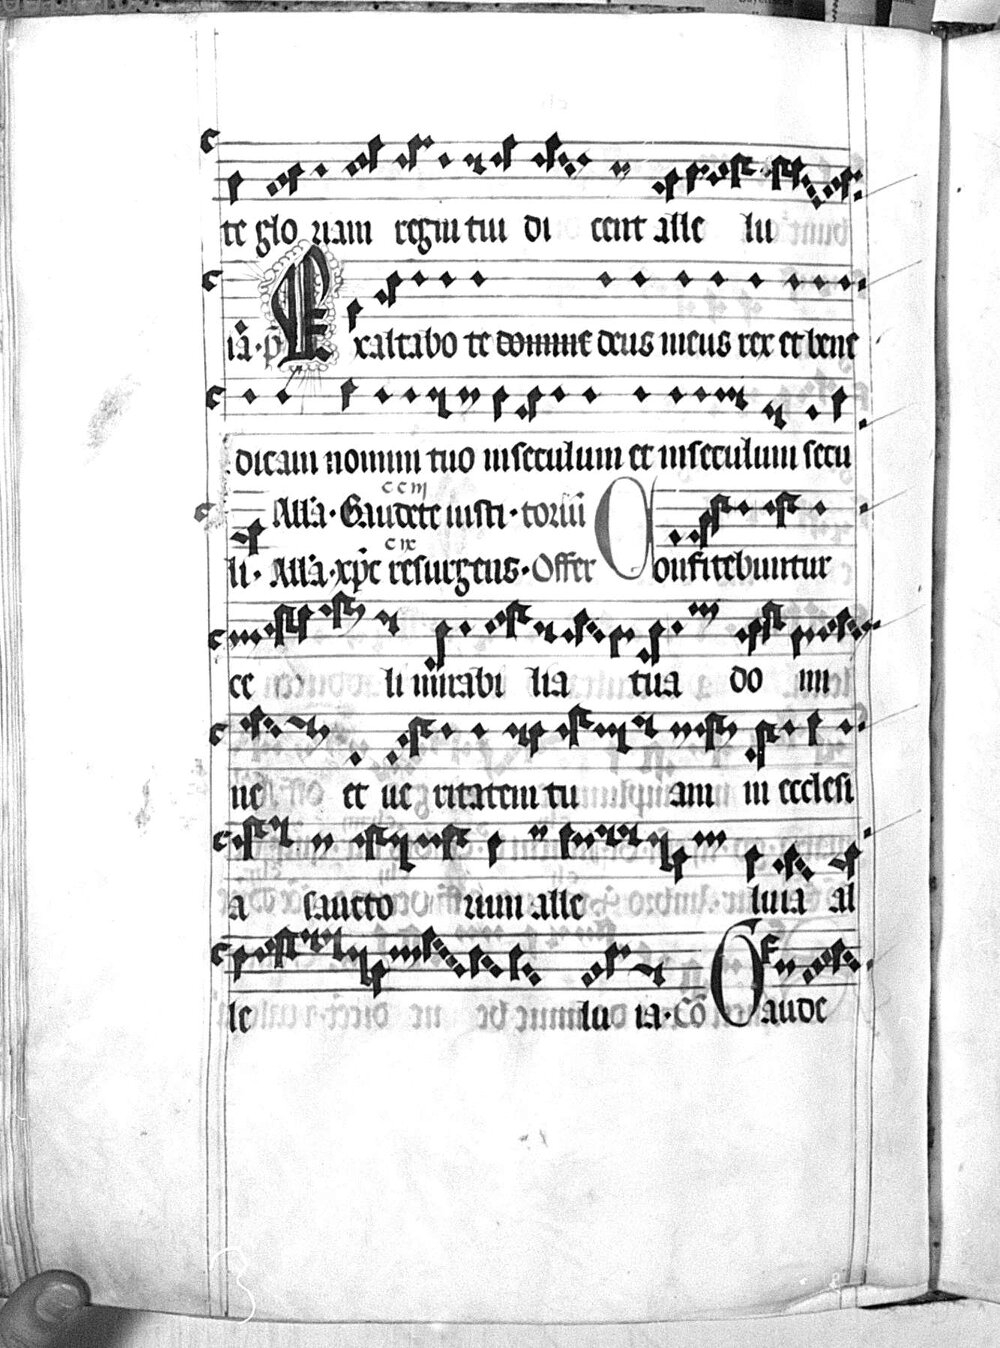 te glo riam regni tui di cent alle lu
ia · p̄ Exaltabo te domine deus meus rex et bene
dicam nomini tuo in seculum et in seculum secu
cciij
Alla · Gaudete iusti · toriū Confitebuntur
cix
li · Alla · xpc resurgens · Offer
ce li mirabi lia tua do mi
ne et ue ritatem tu am in ecclesi
a sancto rum alle luia al
le lu ia · Cō Gaude